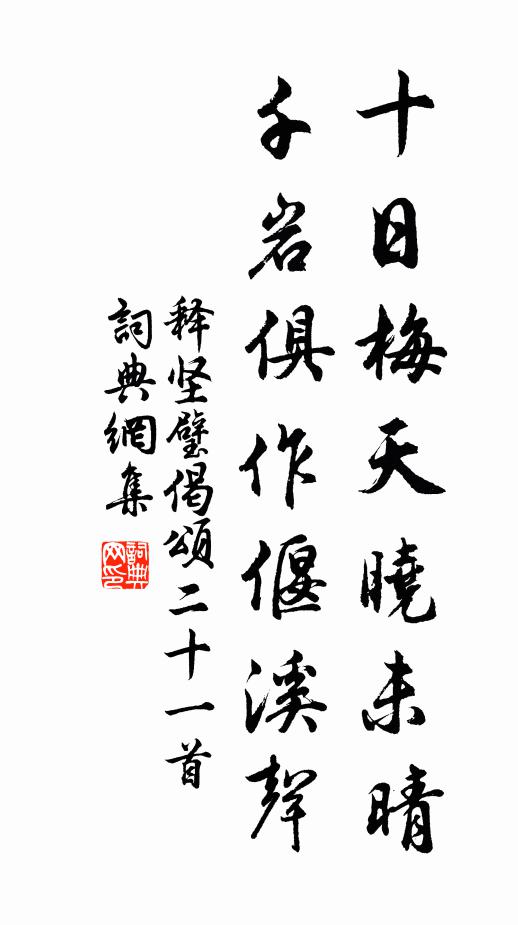 十日梅天曉未晴
千岩俱作偃溪聲
释坚璧偈頌二十一首
詞典網集
詞典網印